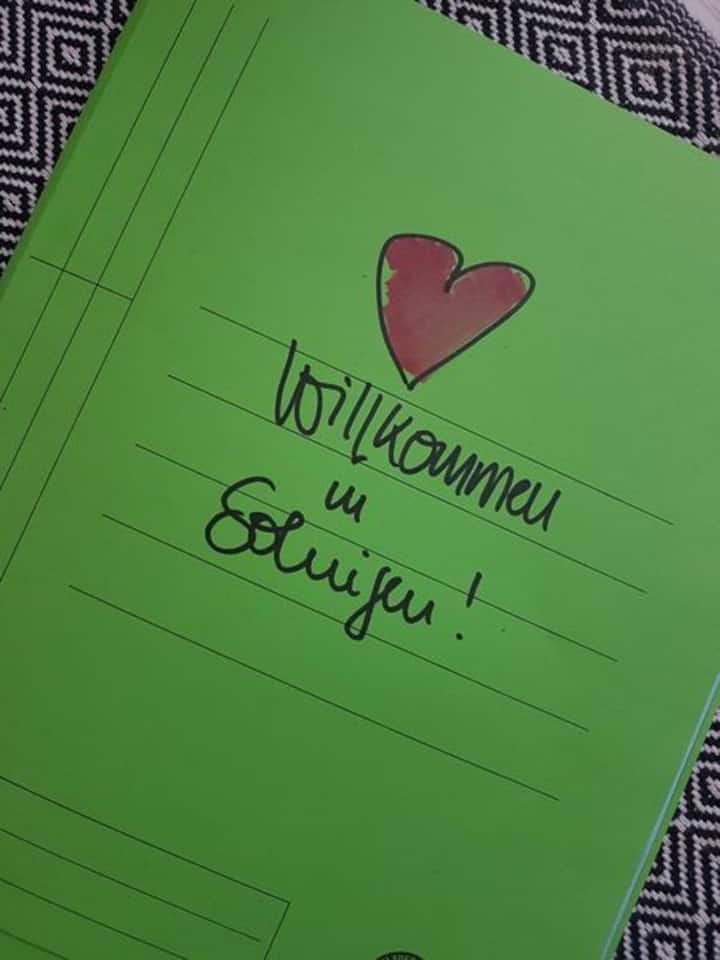 Willkommen
in
Solingen!